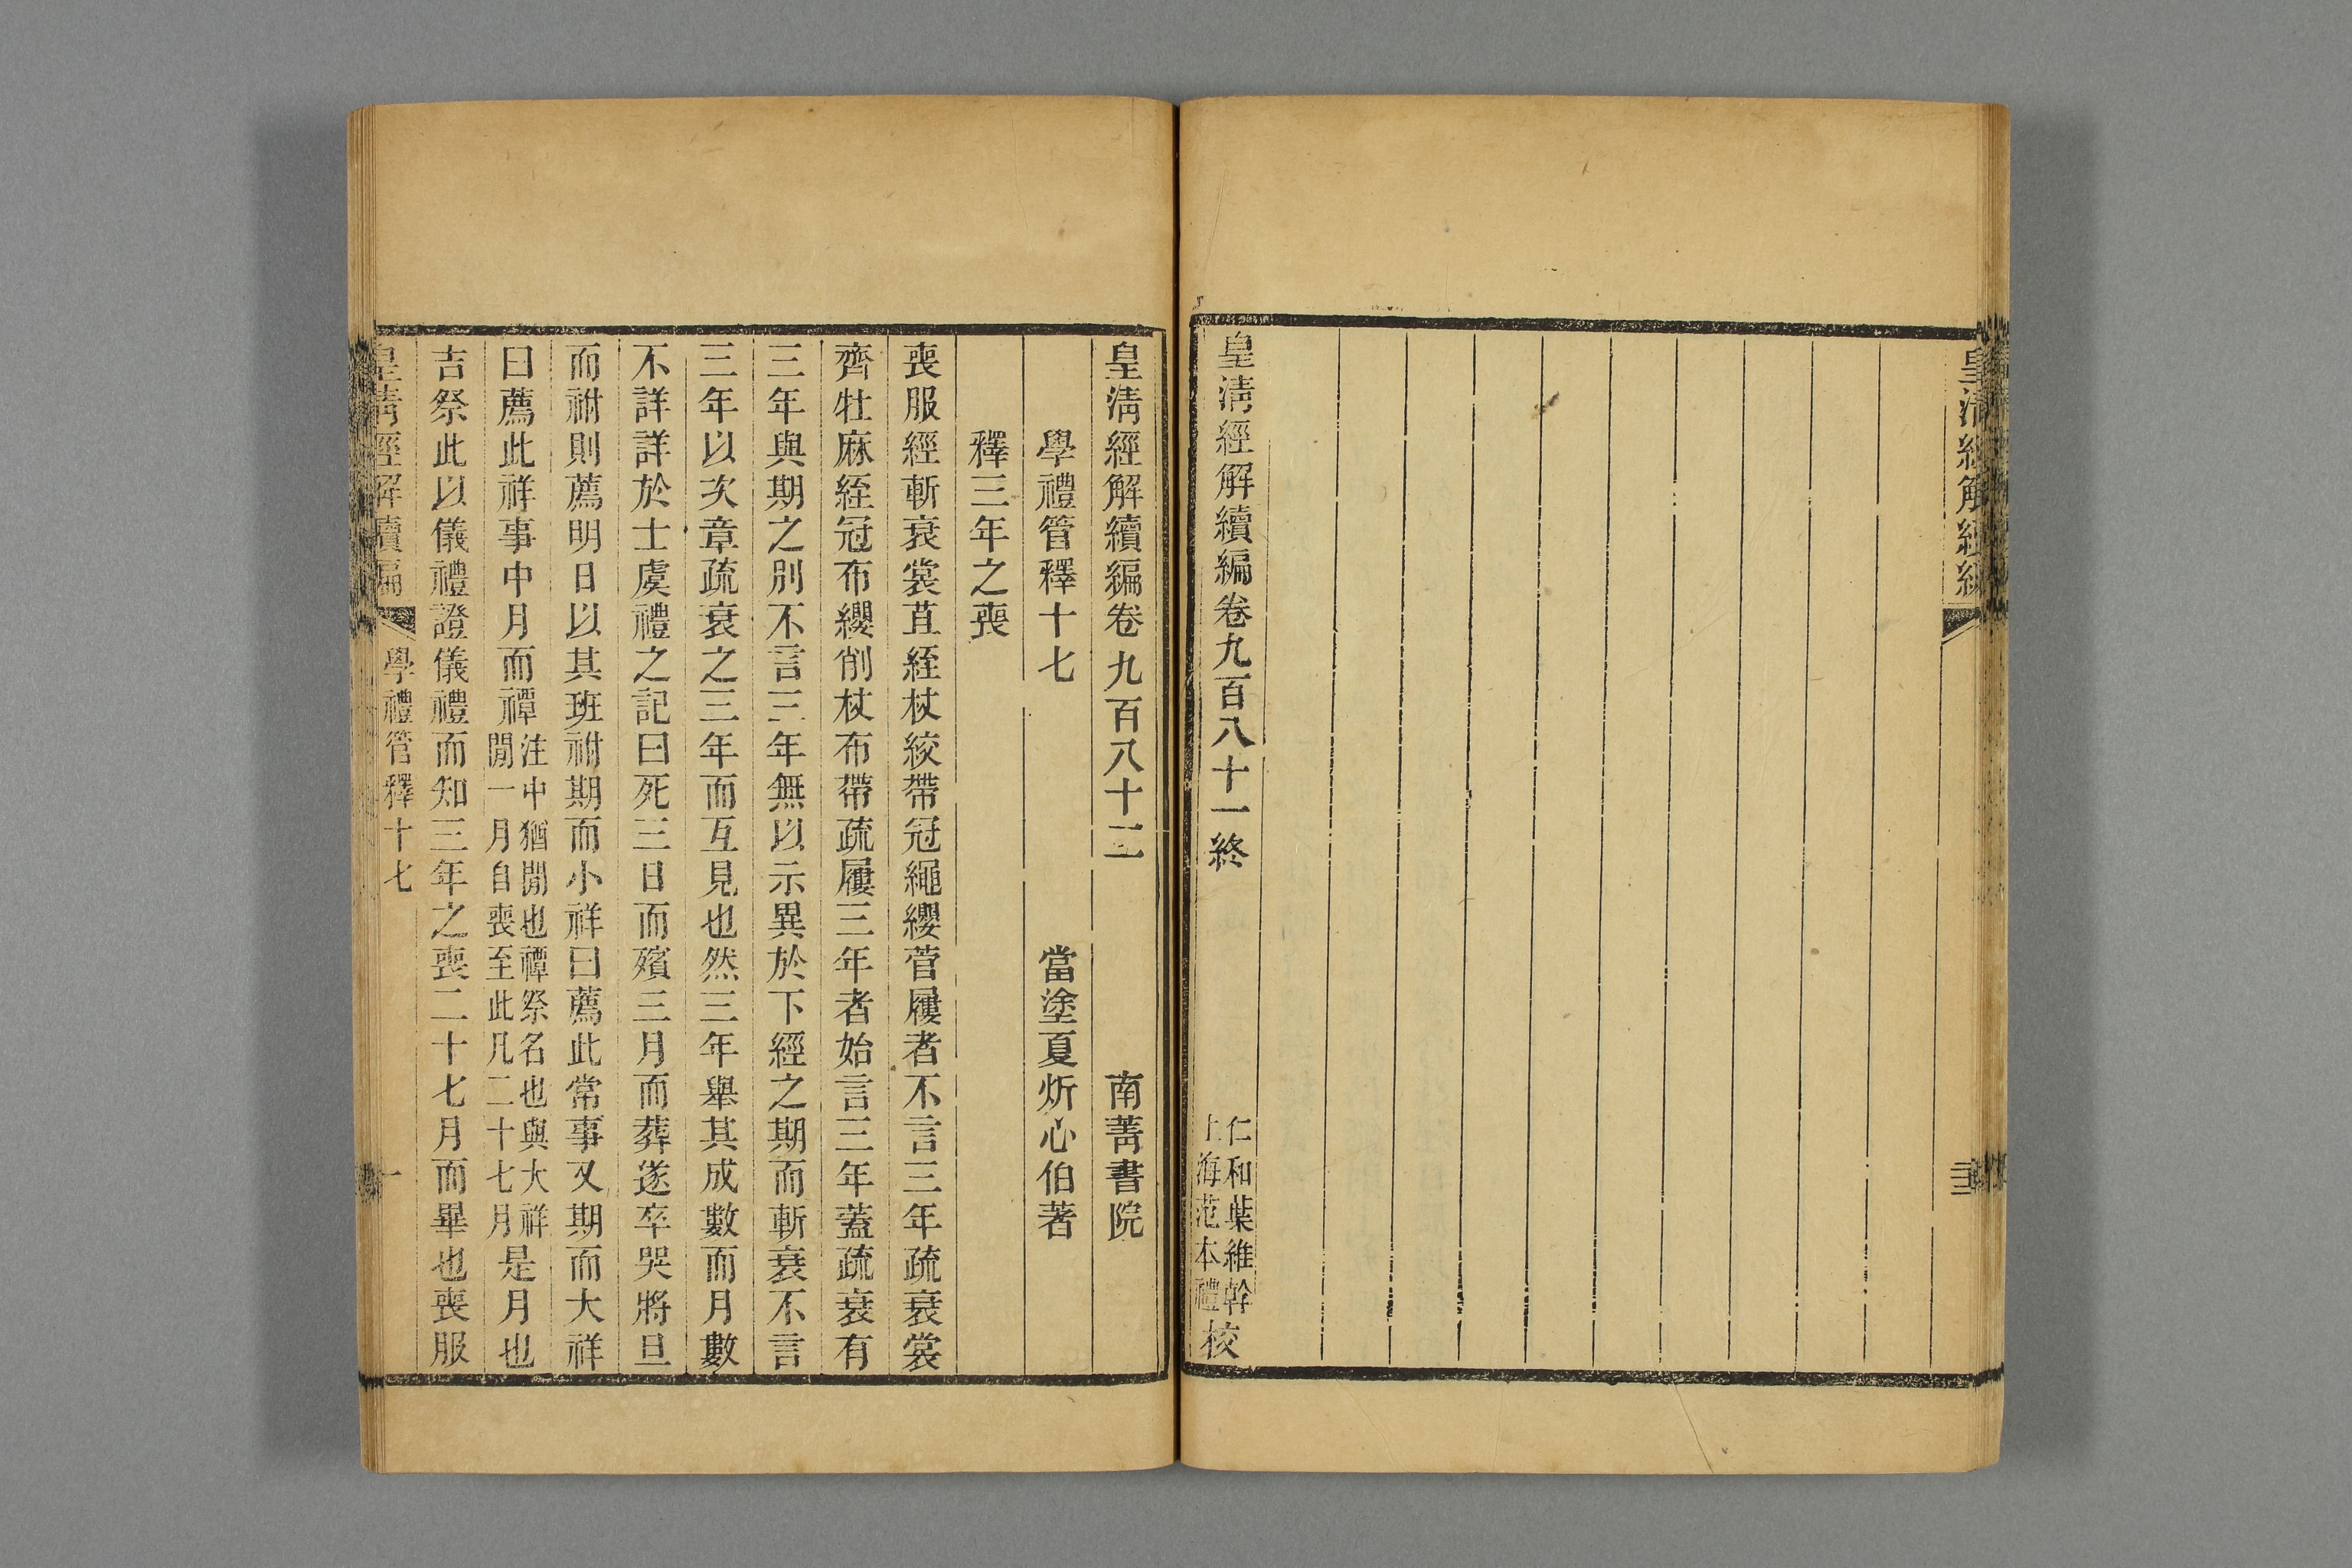 皇清經解續編卷九百八十一終
仁和葉維幹
上海范本禮校
皇清經解續編卷九百八十二
南菁書院
學禮管釋十七
當塗夏炘心伯著
釋三年之喪
喪服經斬衰裳苴絰杖絞帶冠繩纓菅屨者不言三年疏衰裳
齊牡麻絰冠布纓削杖布帶疏屨三年者始言三年蓋疏衰有
三年與期之別不言三年無以示異於下經之期而斬衰不言
三年以次章疏衰之三年而互見也然三年舉其成數而月數
不詳詳於士虞禮之記曰死三日而殯三月而葬遂卒哭將旦
而祔則薦明日以其班祔期而小祥曰薦此常事又期而大祥
曰薦此祥事中月而禫注中猶閒也禫祭名也與大祥閒一月自喪至此凡二十七月是月也
吉祭此以儀禮證儀禮而知三年之喪二十七月而畢也喪服
皇清經解續編
學禮管釋十七
一